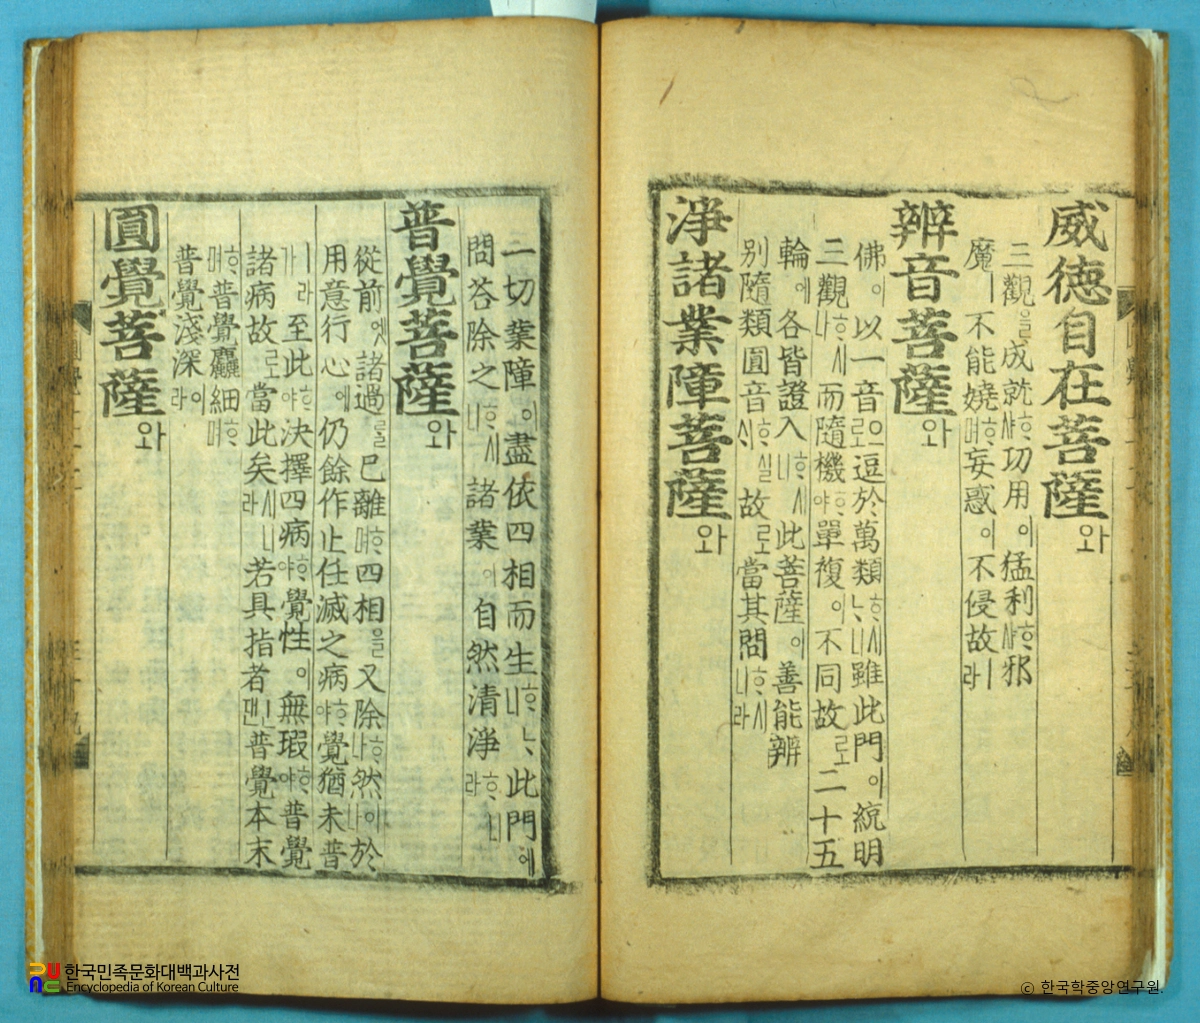 威德自在菩薩와
三觀을成就ᄒᆞ샤功用이猛利ᄒᆞ샤邪
魔ㅣ不能嬈ᄒᆞ며妄惑이不侵故ㅣ라
辨音菩薩와
佛이以一音으로逗於萬類ᄒᆞ시ᄂᆞ니雖此門이統明
三觀ᄒᆞ시나而隨機ᄒᆞ야單複이不同故로二十五
輪에各皆證入ᄒᆞ시니此菩薩이善能辨
別隨類圓音ᄒᆞ실ᄉᆡ故로當其問ᄒᆞ시니라
淨諸業障菩薩와
一切業障이盡依四相而生ᄒᆞᄂᆞ니此門에
問答除之ᄒᆞ시니諸業이自然清淨ᄒᆞ니라
普覺菩薩와
從前엣諸過ᄅᆞᆯ已離ᄒᆞ며四相을又除ᄒᆞ나然이나於
用意行心에仍餘作止任滅之病ᄒᆞ야覺猶未普
ㅣ라가至此ᄒᆞ야決擇四病ᄒᆞ야覺性이無瑕ᄒᆞ야普覺
諸病故로當此矣시니라若具指者ㅣㄴ댄普覺本末
ᄒᆞ며普覺麤細ᄒᆞ며
普覺淺深이라
圓覺菩薩와
한국민족문화대백과사전
Encyclopedia of Korean Culture
© 한국학중앙연구원.